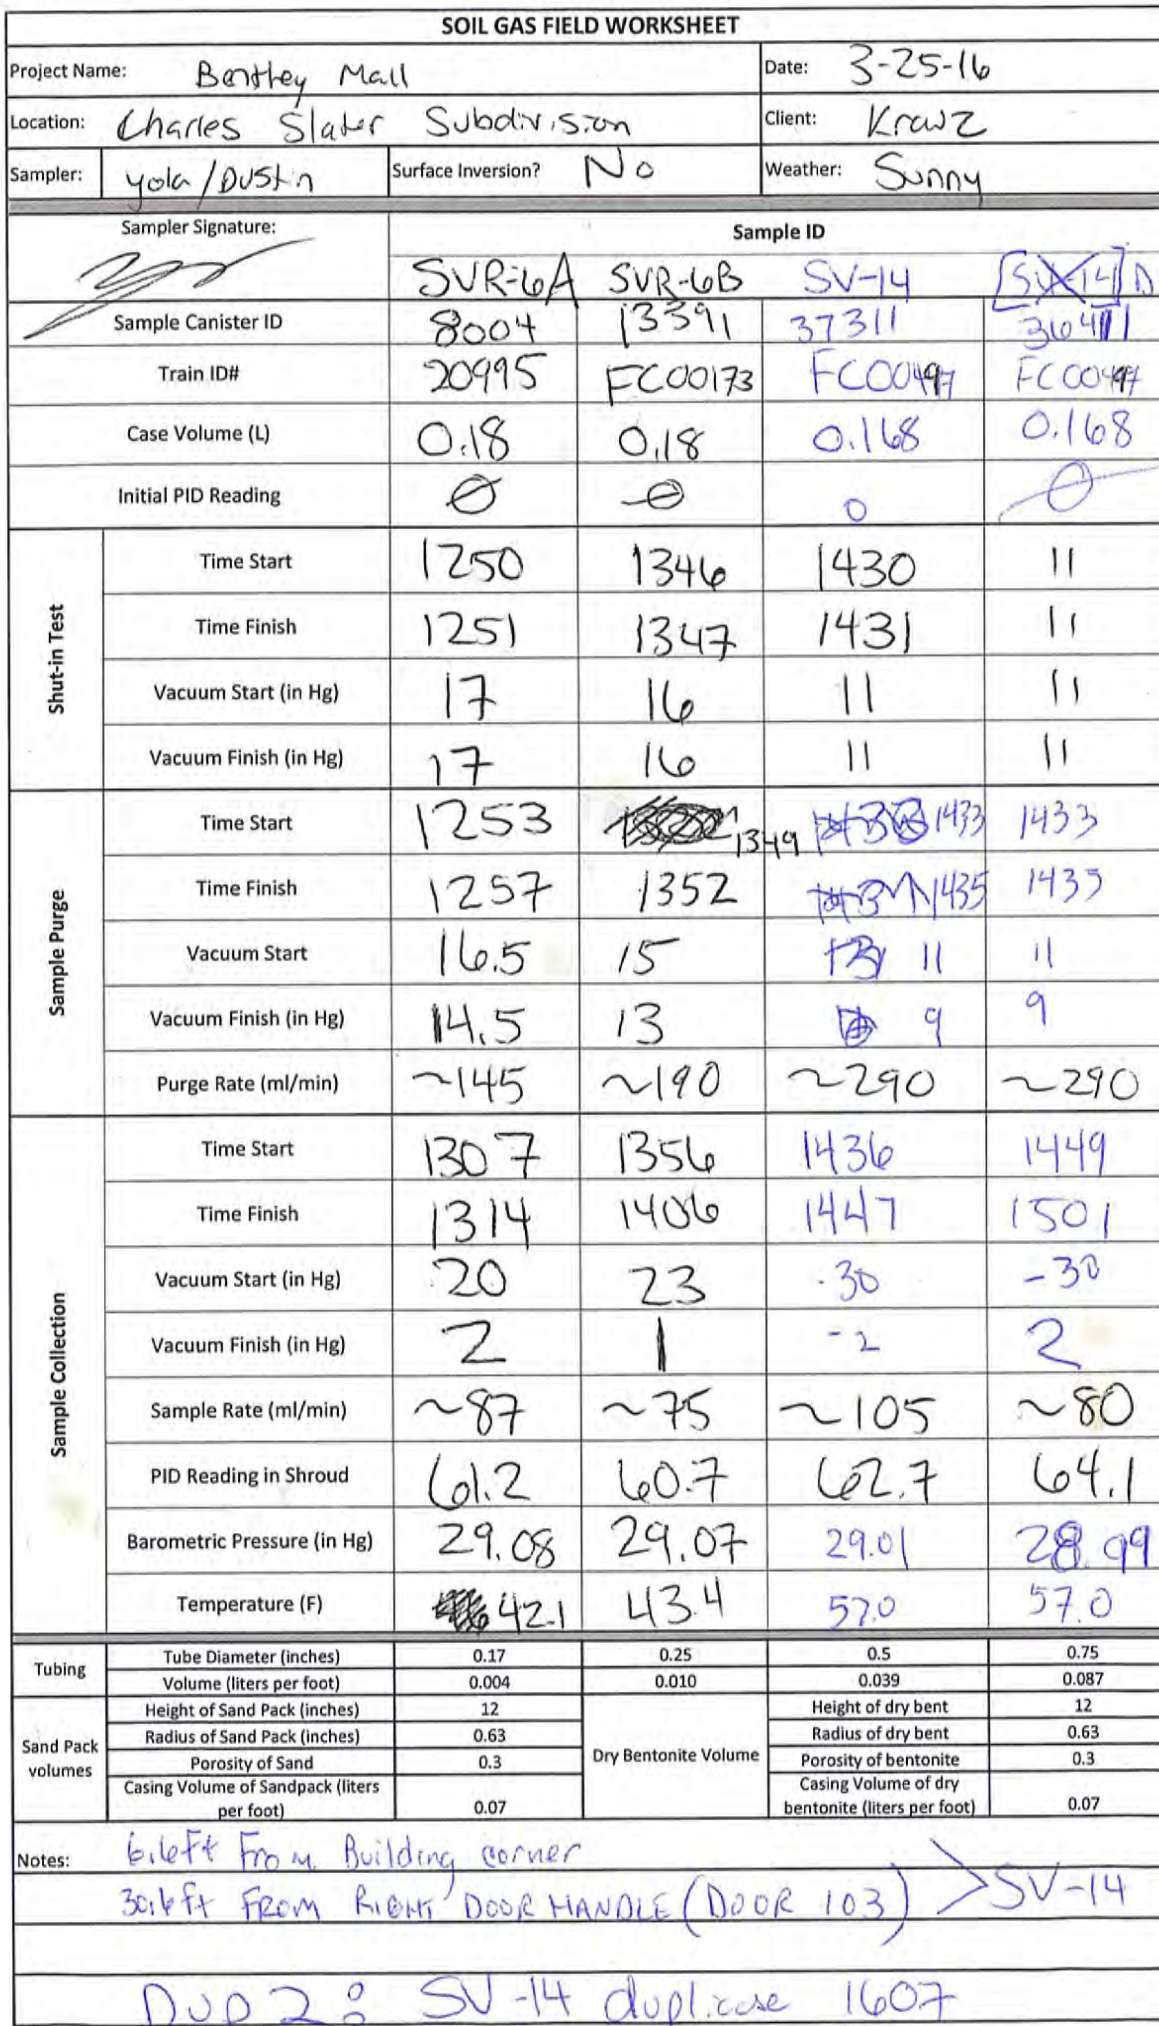 SOIL GAS FIELD WORKSHEET
Project Name: Benthey Mall Date: 3-25-16
Location: Charles Slater Subdivision Client: Krawz
Sampler: yola/Dustin Surface Inversion? No Weather: Sunny
Sampler Signature: Sample ID
SVR-6A SVR-6B SV-14 [SV-14] D
Sample Canister ID 8004 13391 37311
Train ID# 20995 FC00173 FC00497 FC00497
Case Volume (L) 0.18 0.18 0.168 0.168
Initial PID Reading 0 0 0 0
Shut-in Test
Time Start 1250 1346 1430 11
Time Finish 1251 1347 1431 11
Vacuum Start (in Hg) 17 16 11 11
Vacuum Finish (in Hg) 17 16 11 11
Sample Purge
Time Start 1253 1349 1433 1433
Time Finish 1257 1352 1435 1435
Vacuum Start 16.5 15 11 11
Vacuum Finish (in Hg) 14.5 13 9 9
Purge Rate (ml/min) ~145 ~190 ~290 ~290
Sample Collection
Time Start 1307 1356 1436 1449
Time Finish 1314 1406 1447 1501
Vacuum Start (in Hg) 20 23 -30 -30
Vacuum Finish (in Hg) 2 1 -2 2
Sample Rate (ml/min) ~87 ~75 ~105 ~80
PID Reading in Shroud 61.2 60.7 62.7 64.1
Barometric Pressure (in Hg) 29.08 29.07 29.01 28.99
Temperature (F) 42.1 43.4 57.0 57.0
Tubing
Tube Diameter (inches) 0.17 0.25 0.5 0.75
Volume (liters per foot) 0.004 0.010 0.039 0.087
Sand Pack volumes
Dry Bentonite Volume
Height of Sand Pack (inches) 12 Height of dry bent 12
Radius of Sand Pack (inches) 0.63 Radius of dry bent 0.63
Porosity of Sand 0.3 Porosity of bentonite 0.3
Casing Volume of Sandpack (liters per foot) 0.07 Casing Volume of dry bentonite (liters per foot) 0.07
Notes: 6.6ft From Building corner
30.6ft FROM RIGHT DOOR HANDLE (DOOR 103) > SV-14
DUP 2: SV-14 duplicase 1607